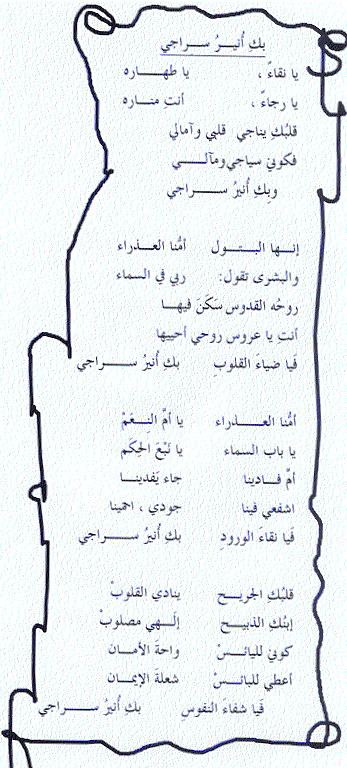 بكِ أُنيرُ ســراجي
يا نقاءٌ ، يا طهــاره
يا رجاءٌ ، أنتِ منــاره
قلبُكِ يناجي قلبي وآمالي
فكوني سياجي ومآلــي
وبِكِ أُنيرُ ســـراجي
إنــها البــتــول أمُّنا العــذراء
والبشرى تقول: ربي في السماء
روحُه القدوس سَكَنَ فيهــا
أنتِ يا عروس روحي أحييها
فَيا ضياءَ القلوبِ بكِ أُنيرُ ســـراجي
أمُّنا العــذراء يا أمَّ النِــعَمْ
يا باب السماء يا نَبْعَ الحِكَم
أمَّ فــادينا جاء يَفدينــا
اشفعي فينا جودي ، احمينا
فَيا نقاءَ الورودِ بكِ أُنيرُ ســـراجي
قلبُكِ الجريــح ينادي القلوبْ
إبنُكِ الذبيــح إلَــهي مصلوبْ
كوني لليائــسْ واحةَ الأمــان
أعطي للبائــسْ شعلةَ الإيمــان
فَيا شفاءَ النفوسِ بكِ أُنيرُ ســـراجي